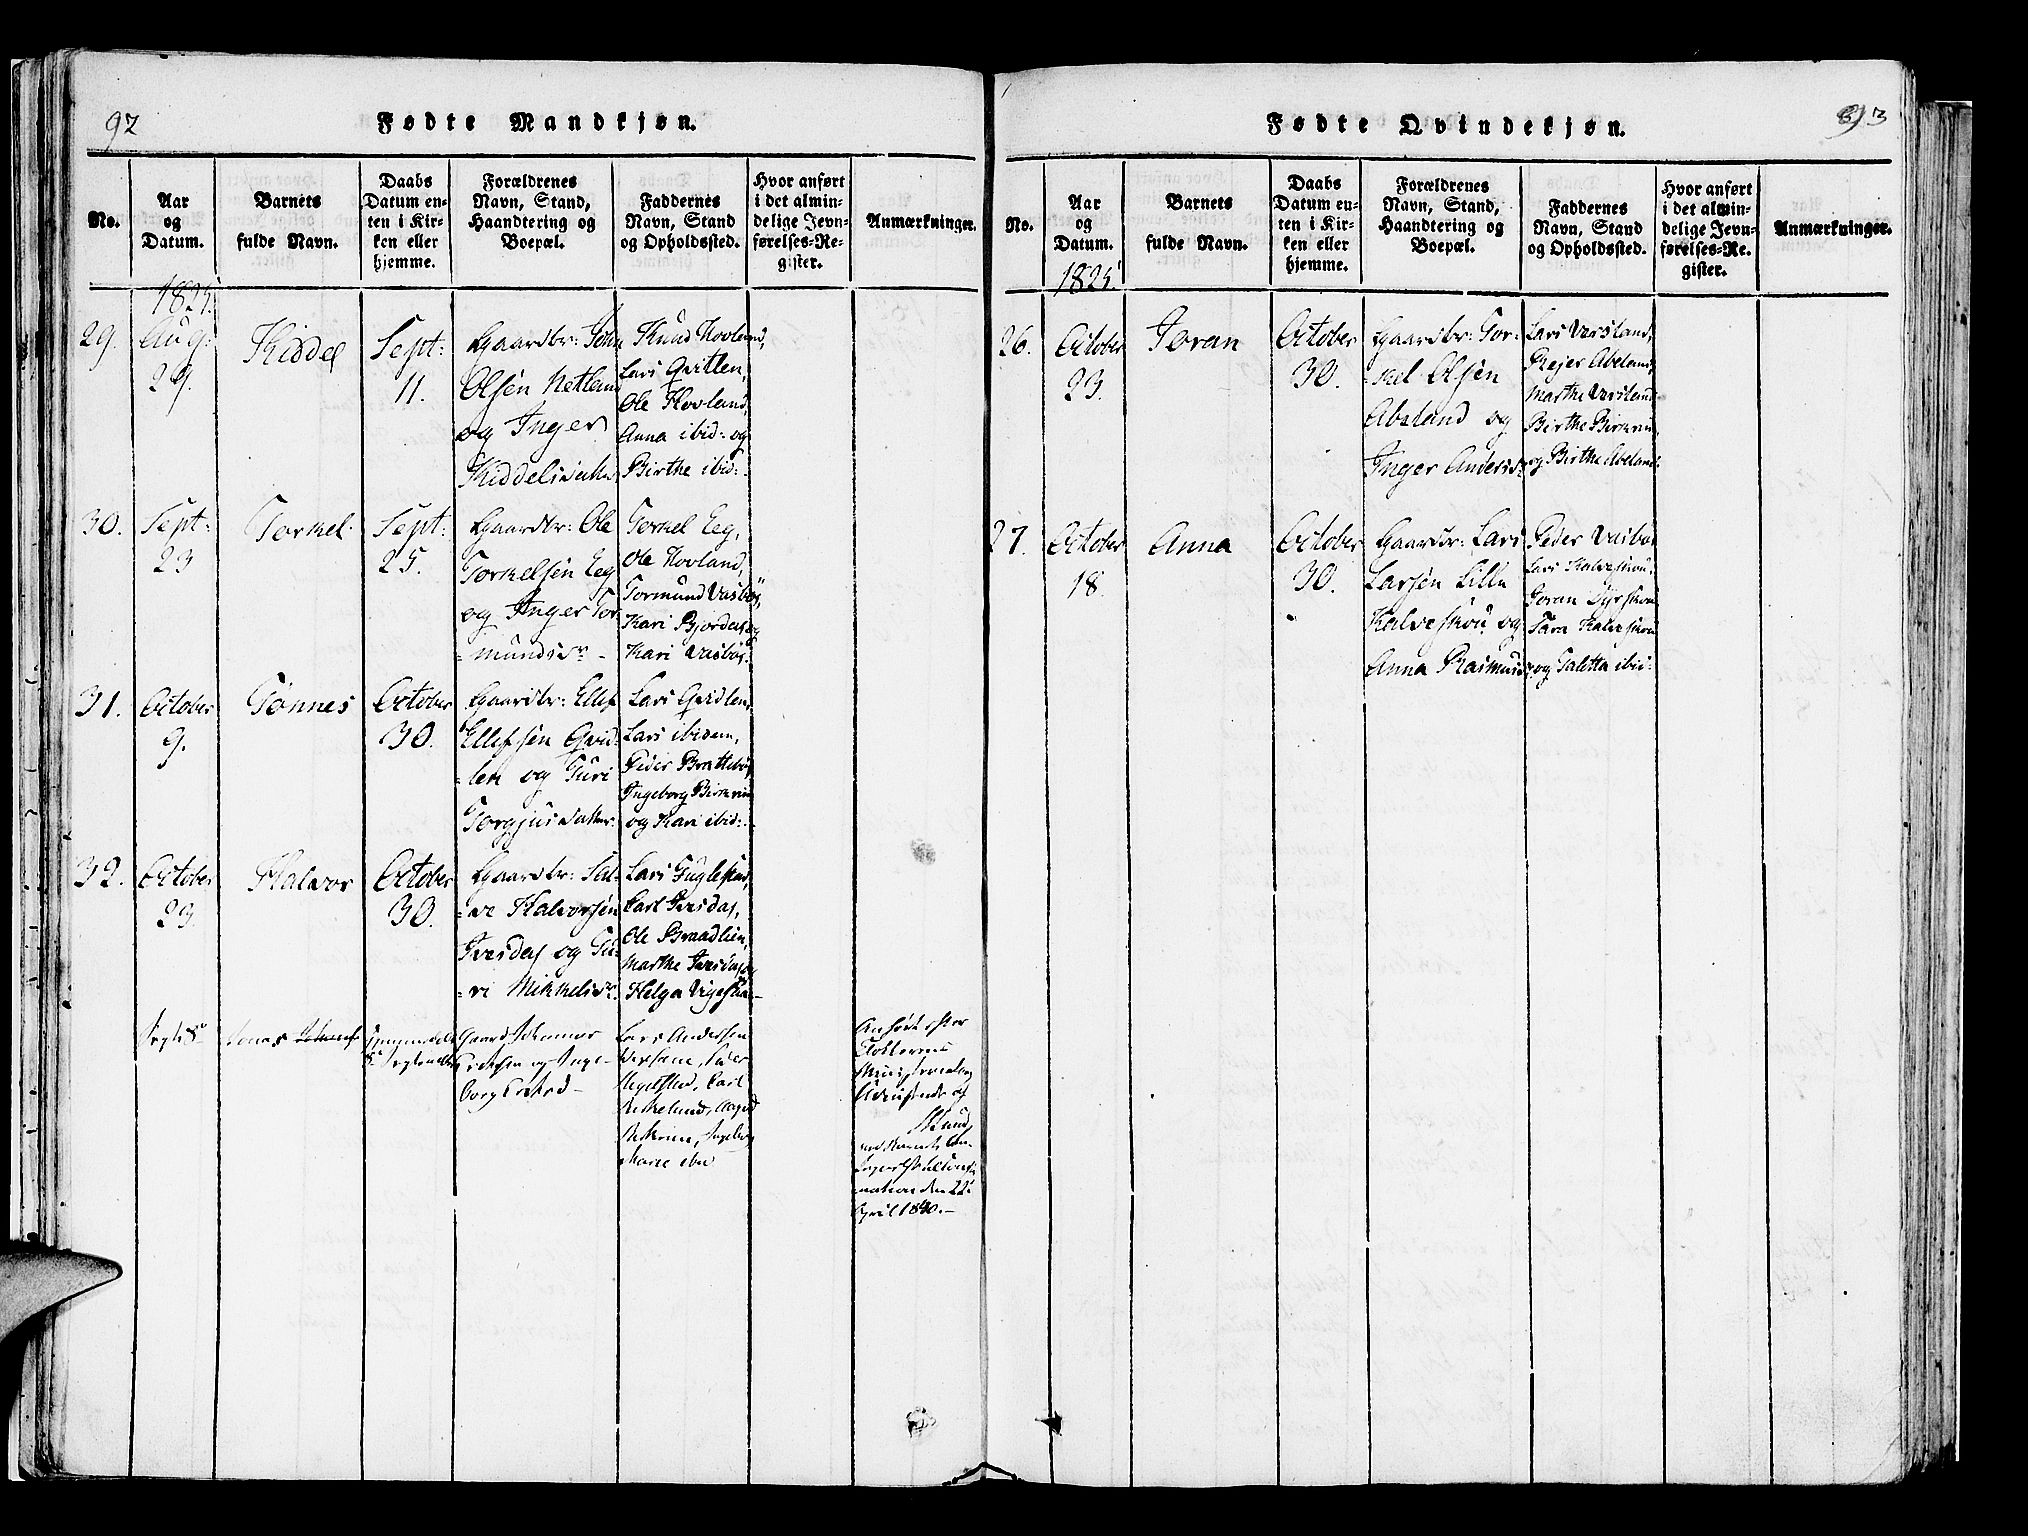 92
Fødte Mandkjøn.
No.
Aar
og
Datum.
Barnets
fulde Navn.
Daabs
Datum en-
ten i Kir-
ken eller
hjemme.
Forældrenes
Navn, Stand,
Haandtering og
Boepæl.
Faddernes
Navn, Stand
og Opholdssted.
Hvor anført
i det almin-
delige Jevn-
førelses-Re-
gister.
Anmærkninger.
1825.
29.
Aug:
29.
Kiddel
Sept:
11.
Gaardbr: John
Olsen Netland
og Inger
Kiddelsdatter
Knud Hovland,
Lars Qvitlen,
Ole Hovland,
Anna ibid: og
Birthe ibid:
30.
Sept:
23
Torkel
Sept:
25.
Gaardbr: Ole
Torkelsen Eeg
og Inger Tor
=mundsdr
Torkel Eeg,
Ole Hovland,
Tormund Vasbøe,
Kari Bjordal og
Kari Vasbøe.
31.
October
9.
Tønnes
October
30.
Gaardbr: Ellef
Ellefsen Qvid=
=len og Turi
Torgjusdatter
Lars Qvidlen,
Lars ibidem,
Peder Brattebøe
Ingeborg Birkrem
og Kari ibid:
32.
October
23.
Halvor
October
30.
Gaardbr: Sal=
=ve Halvorsen
Ivesdal og Tu=
=ri Mikkelsdr.
Lars Fuglestad,
Carl Ivesdal,
Ole Braadlien,
Marthe Ivesdal og
Helga Vigeskaa
Septr 8de
Jonas
Gaard. Johannes
og Inge-
borg
Lars Andersen
Carl
Ingeborg
Marie ibid
Anført efter
og
April 1840.
93
Fødte Qvindekjøn.
No.
Aar
og
Datum.
Barnets
fulde Navn.
Daabs
Datum en-
ten i Kir-
ken eller
hjemme.
Forældrenes
Navn, Stand,
Haandtering og
Boepæl.
Faddernes
Navn, Stand
og Opholdssted.
Hvor anført
i det almin-
delige Jevn-
førelses-Re-
gister.
Anmærkninger.
1825.
26.
October
23.
Joran
October
30.
Gaardbr: Tor=
=kel Olsen
Abeland og
Inger Andersdr
Lars Versland,
Rejer Abeland,
Marthe Versland
Birthe Birkrem
og Birthe Abeland.
27.
October
18.
Anna
October
30.
Gaardbr: Lars
Larsen Lille
Kalveskou og
Anna Rasmusdr
Peder Vasbøe
Lars Kalveskou,
Joran Dyrskou
Sara Kalveskou
og Taletta ibid: